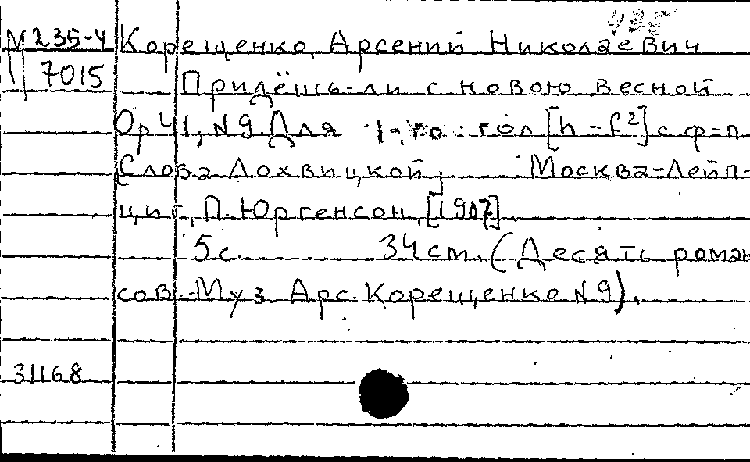 М 235-4 Корещенко, Арсений Николаевич
7015 Придёшь-ли с новою весной
Op 41, №9 Для 1-го гол [h - f²] с ф-п
Слова Лохвицкой, Москва-Лейп-
циг, П. Юргенсон, [1907]
5 с. 34 cm. (Десять роман
сов. Муз Арс. Корещенко №9).
31168